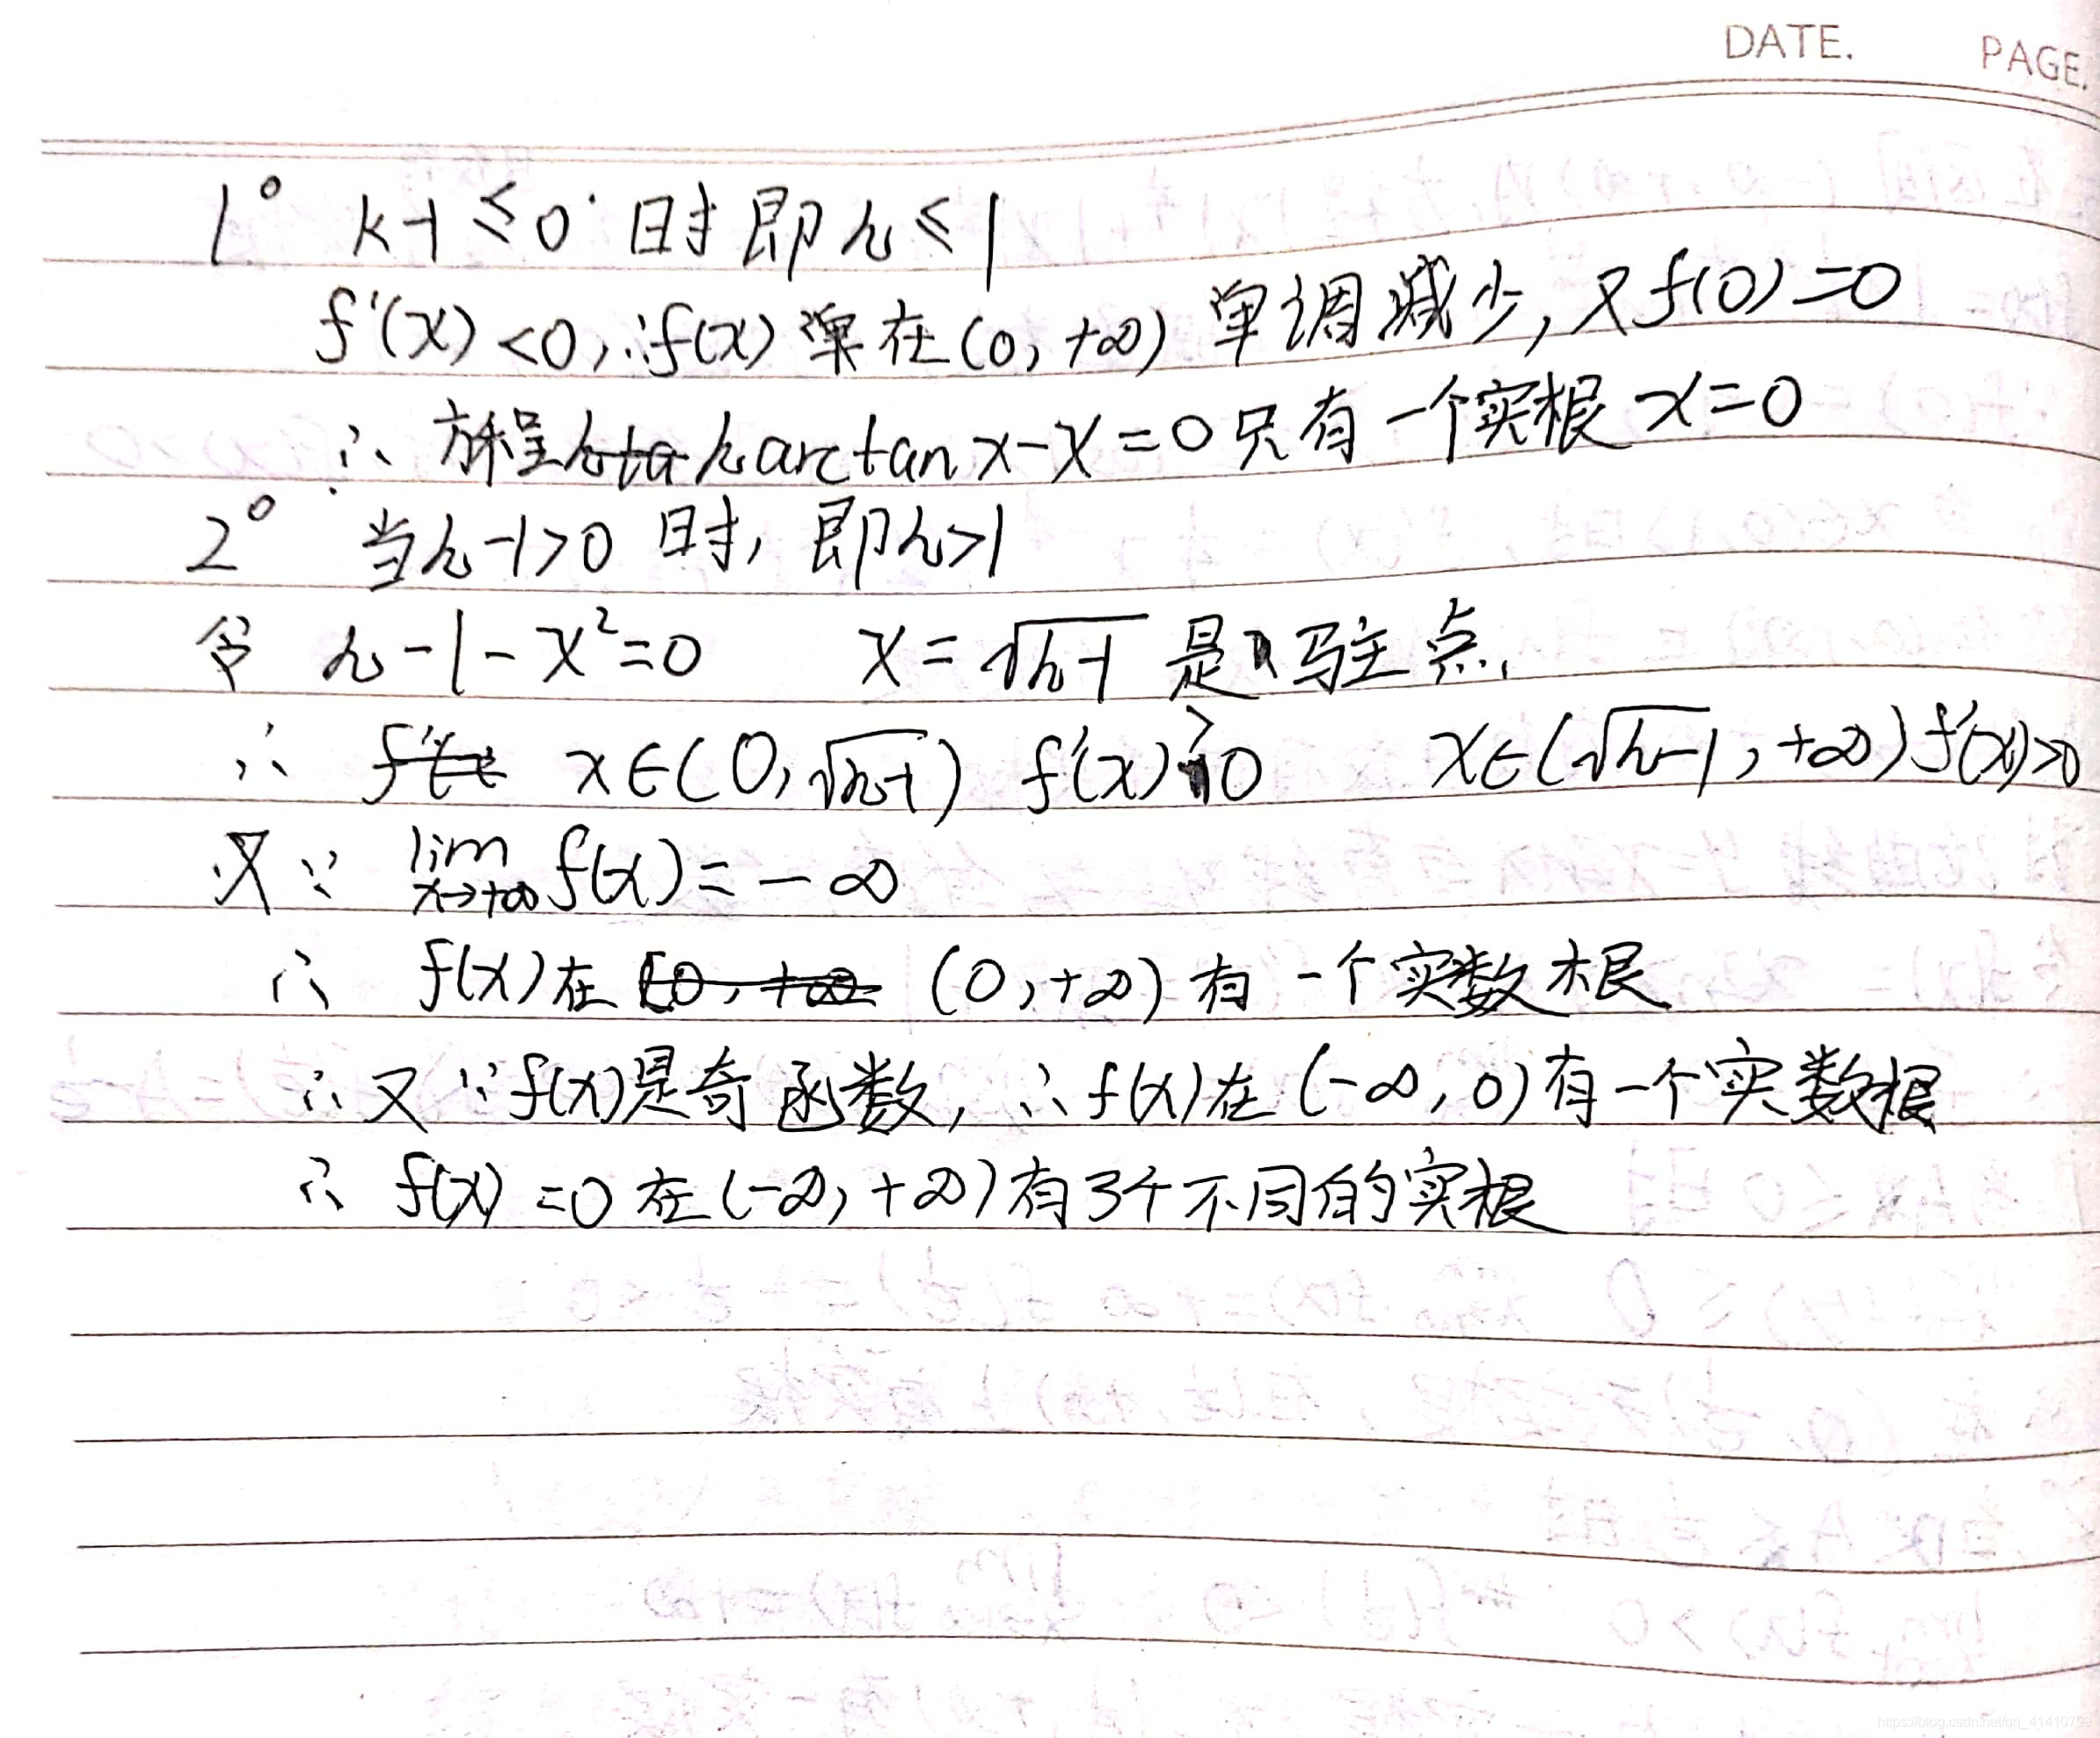 DATE. PAGE.
1° k-1≤0 时 即 k≤1
f'(x)<0, ∴f(x) 在(0, +∞) 单调减少, 又f(0)=0
∴ 方程 k arctan x-x=0 只有一个实根 x=0
2° 当k-1>0 时, 即k>1
令 k-1-x²=0 x=√(k-1) 是 驻点.
∴ x∈(0,√(k-1)) f'(x)>0 x∈(√(k-1), +∞) f'(x)>0
又∵ lim x→+∞ f(x)=-∞
∴ f(x)在 (0,+∞) 有一个实数根
∴ 又∵f(x)是奇函数, ∴f(x)在(-∞,0)有一个实数根
∴ f(x)=0在(-∞,+∞)有3个不同的实根
https://blog.csdn.net/qq_41410799